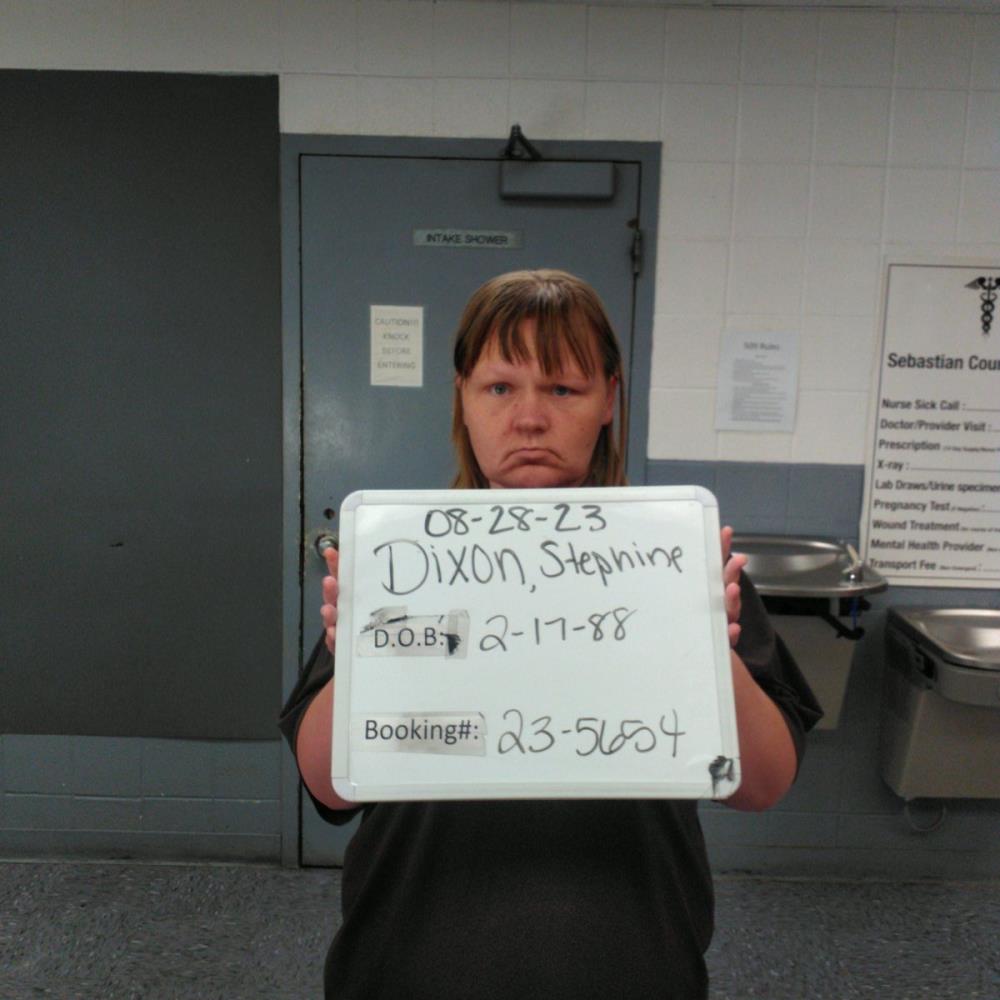 INTAKE SHOWER
CAUTION!!!
KNOCK
BEFORE
ENTERING
Rules
Sebastian Cou
Nurse Sick Call :
Doctor/Provider Visit :
Prescription
X-ray :
Lab Draws/Urine specime
Pregnancy Test
Wound Treatment
Mental Health Provider
Transport Fee
08-28-23
Dixon, Stephine
D.O.B: 2-17-88
Booking#: 23-5654